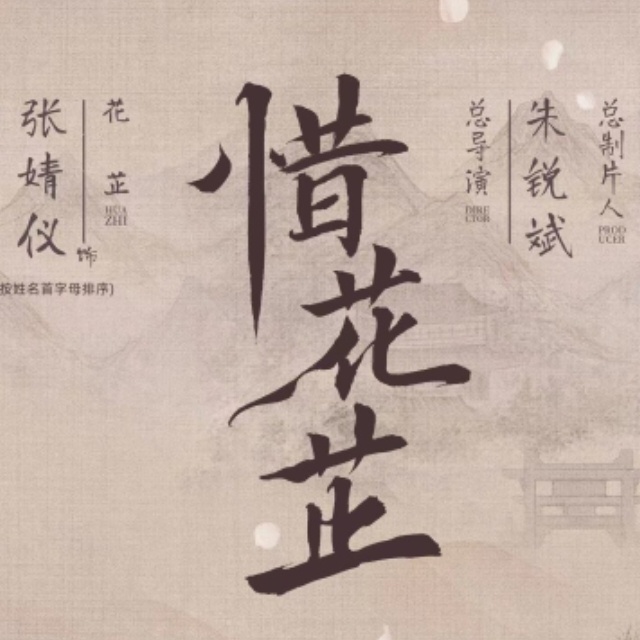 总制片人
PROD
UCER
朱锐斌
总导演
DIRE
CTOR
惜花芷
花芷
HUA
ZHI
张婧仪
饰
按姓名首字母排序)